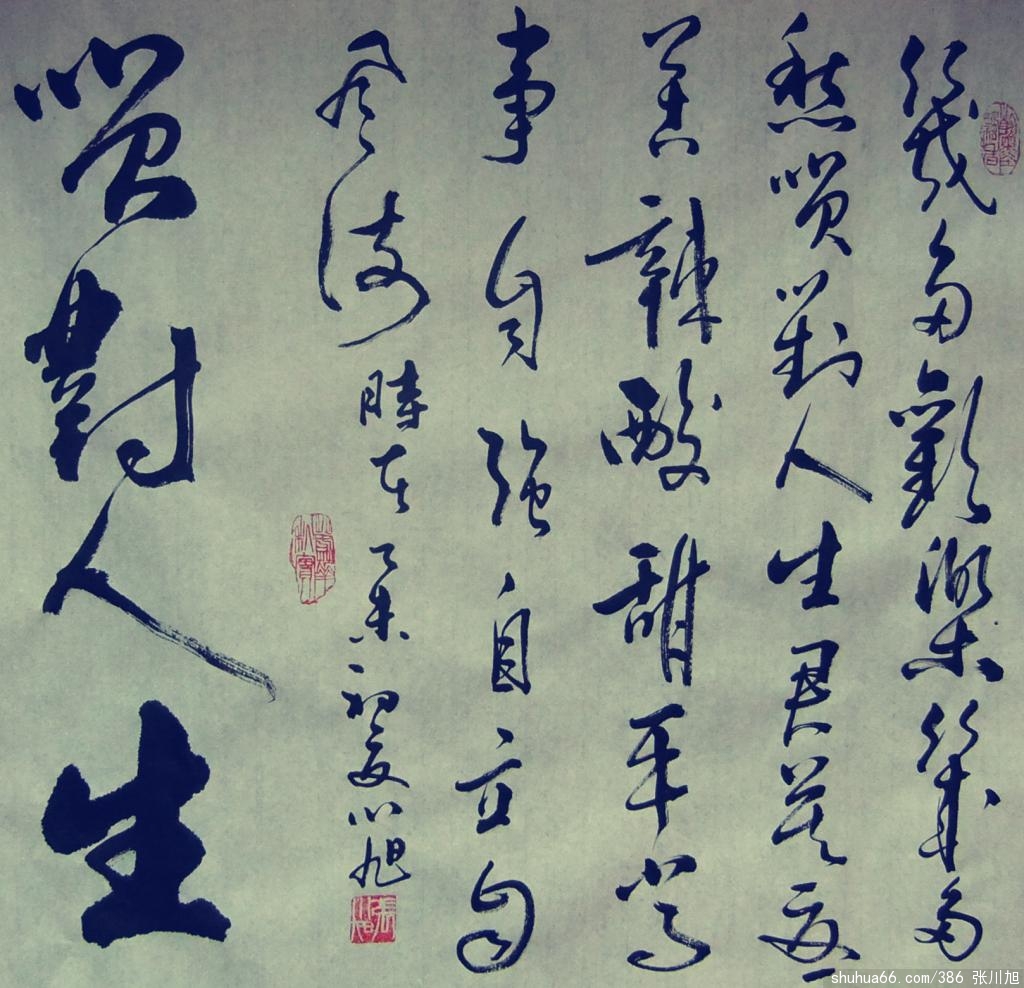 幾多歡樂幾多
愁笑對人生君莫憂
苦辣酸甜平常
事自強自立自
風流 時在乙未初夏川旭
笑對人生
shuhua66.com/386 张川旭